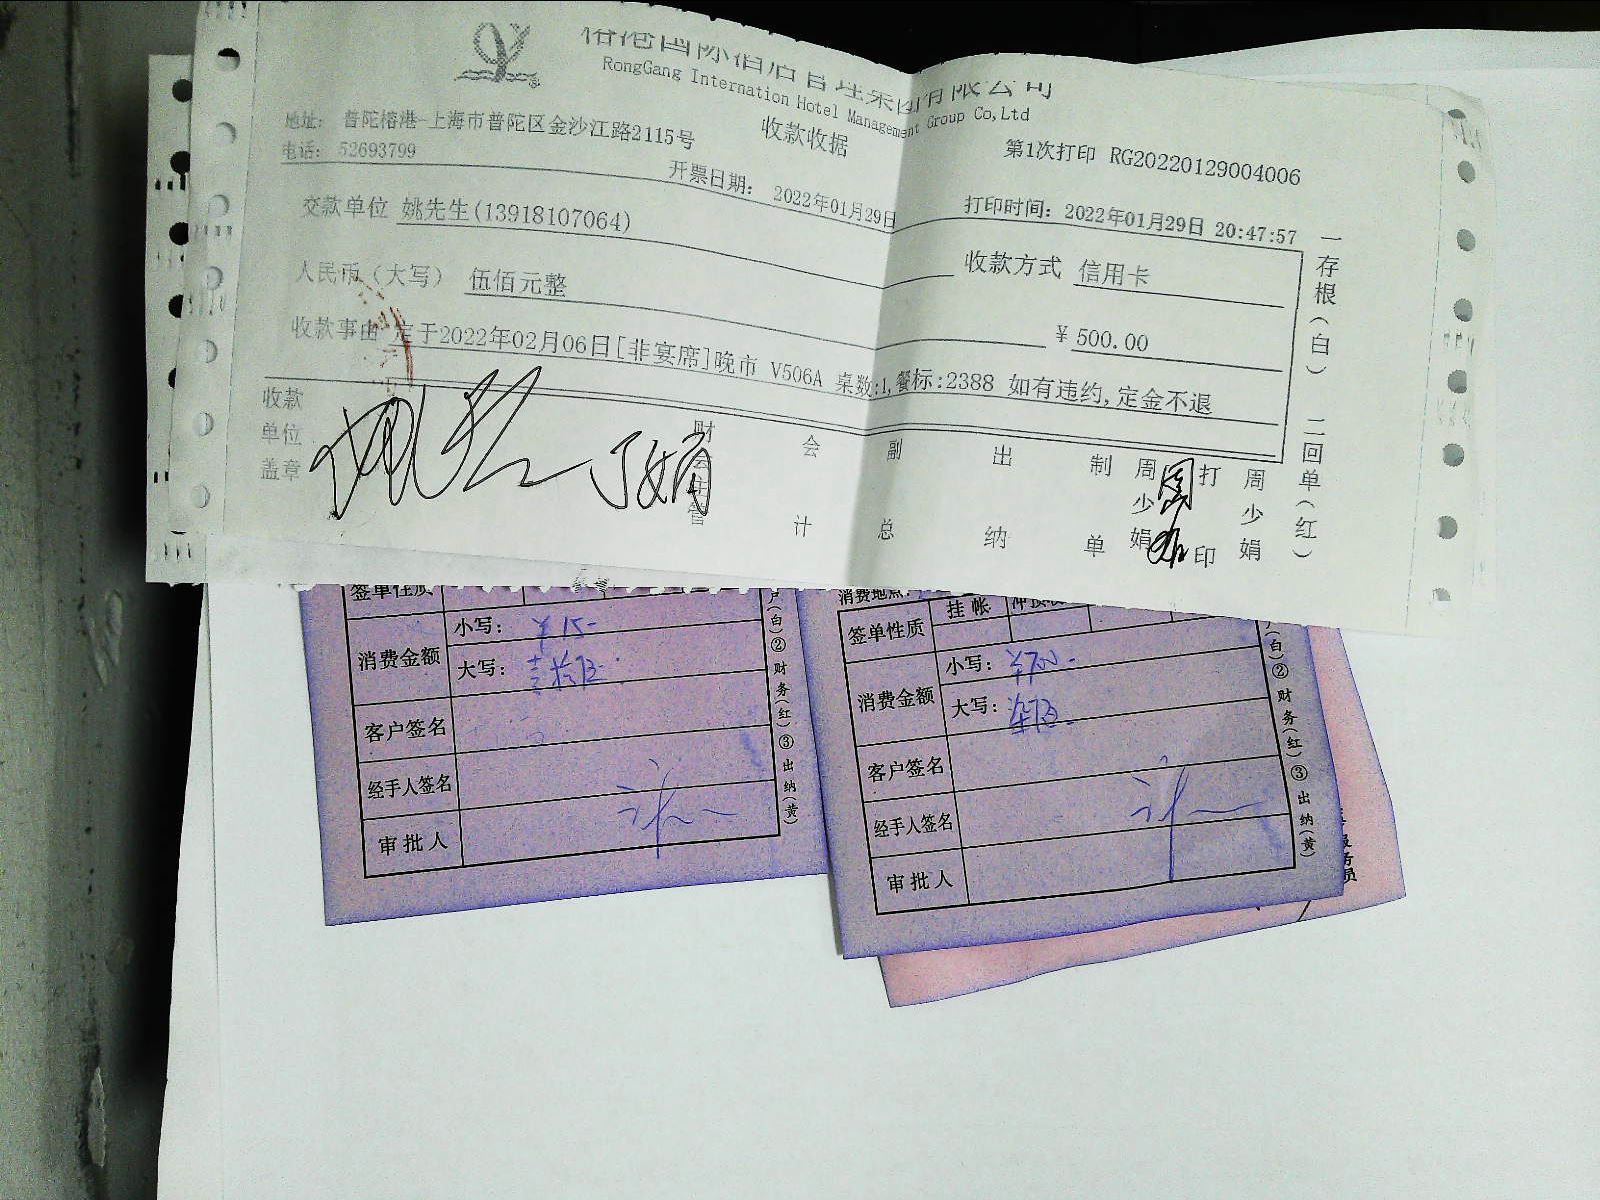 榕港国际酒店管理集团有限公司
RongGang Internation Hotel Management Group Co,Ltd
地址： 普陀榕港-上海市普陀区金沙江路2115号
收款收据
第1次打印 RG20220129004006
电话： 52693799
开票日期： 2022年01月29日
打印时间：2022年01月29日 20:47:57
交款单位 姚先生(13918107064)
收款方式 信用卡
人民币（大写） 伍佰元整
￥500.00
收款事由 定于2022年02月06日[非宴席]晚市 V506A 桌数:1,餐标:2388 如有违约,定金不退
收款单位盖章
财会主管
会计
副总
出纳
制单
周少娟
打印
周少娟
一存根（白） 二回单（红）
签单性质
小写： ￥15-
消费金额
大写： 壹拾伍
客户签名
经手人签名
审批人
户（白）②财务（红）③出纳（黄）
消费地点：
签单性质 挂帐
小写： ￥700-
消费金额
大写： 柒佰
客户签名
经手人签名
审批人
（白）②财务（红）③出纳（黄）
服务员